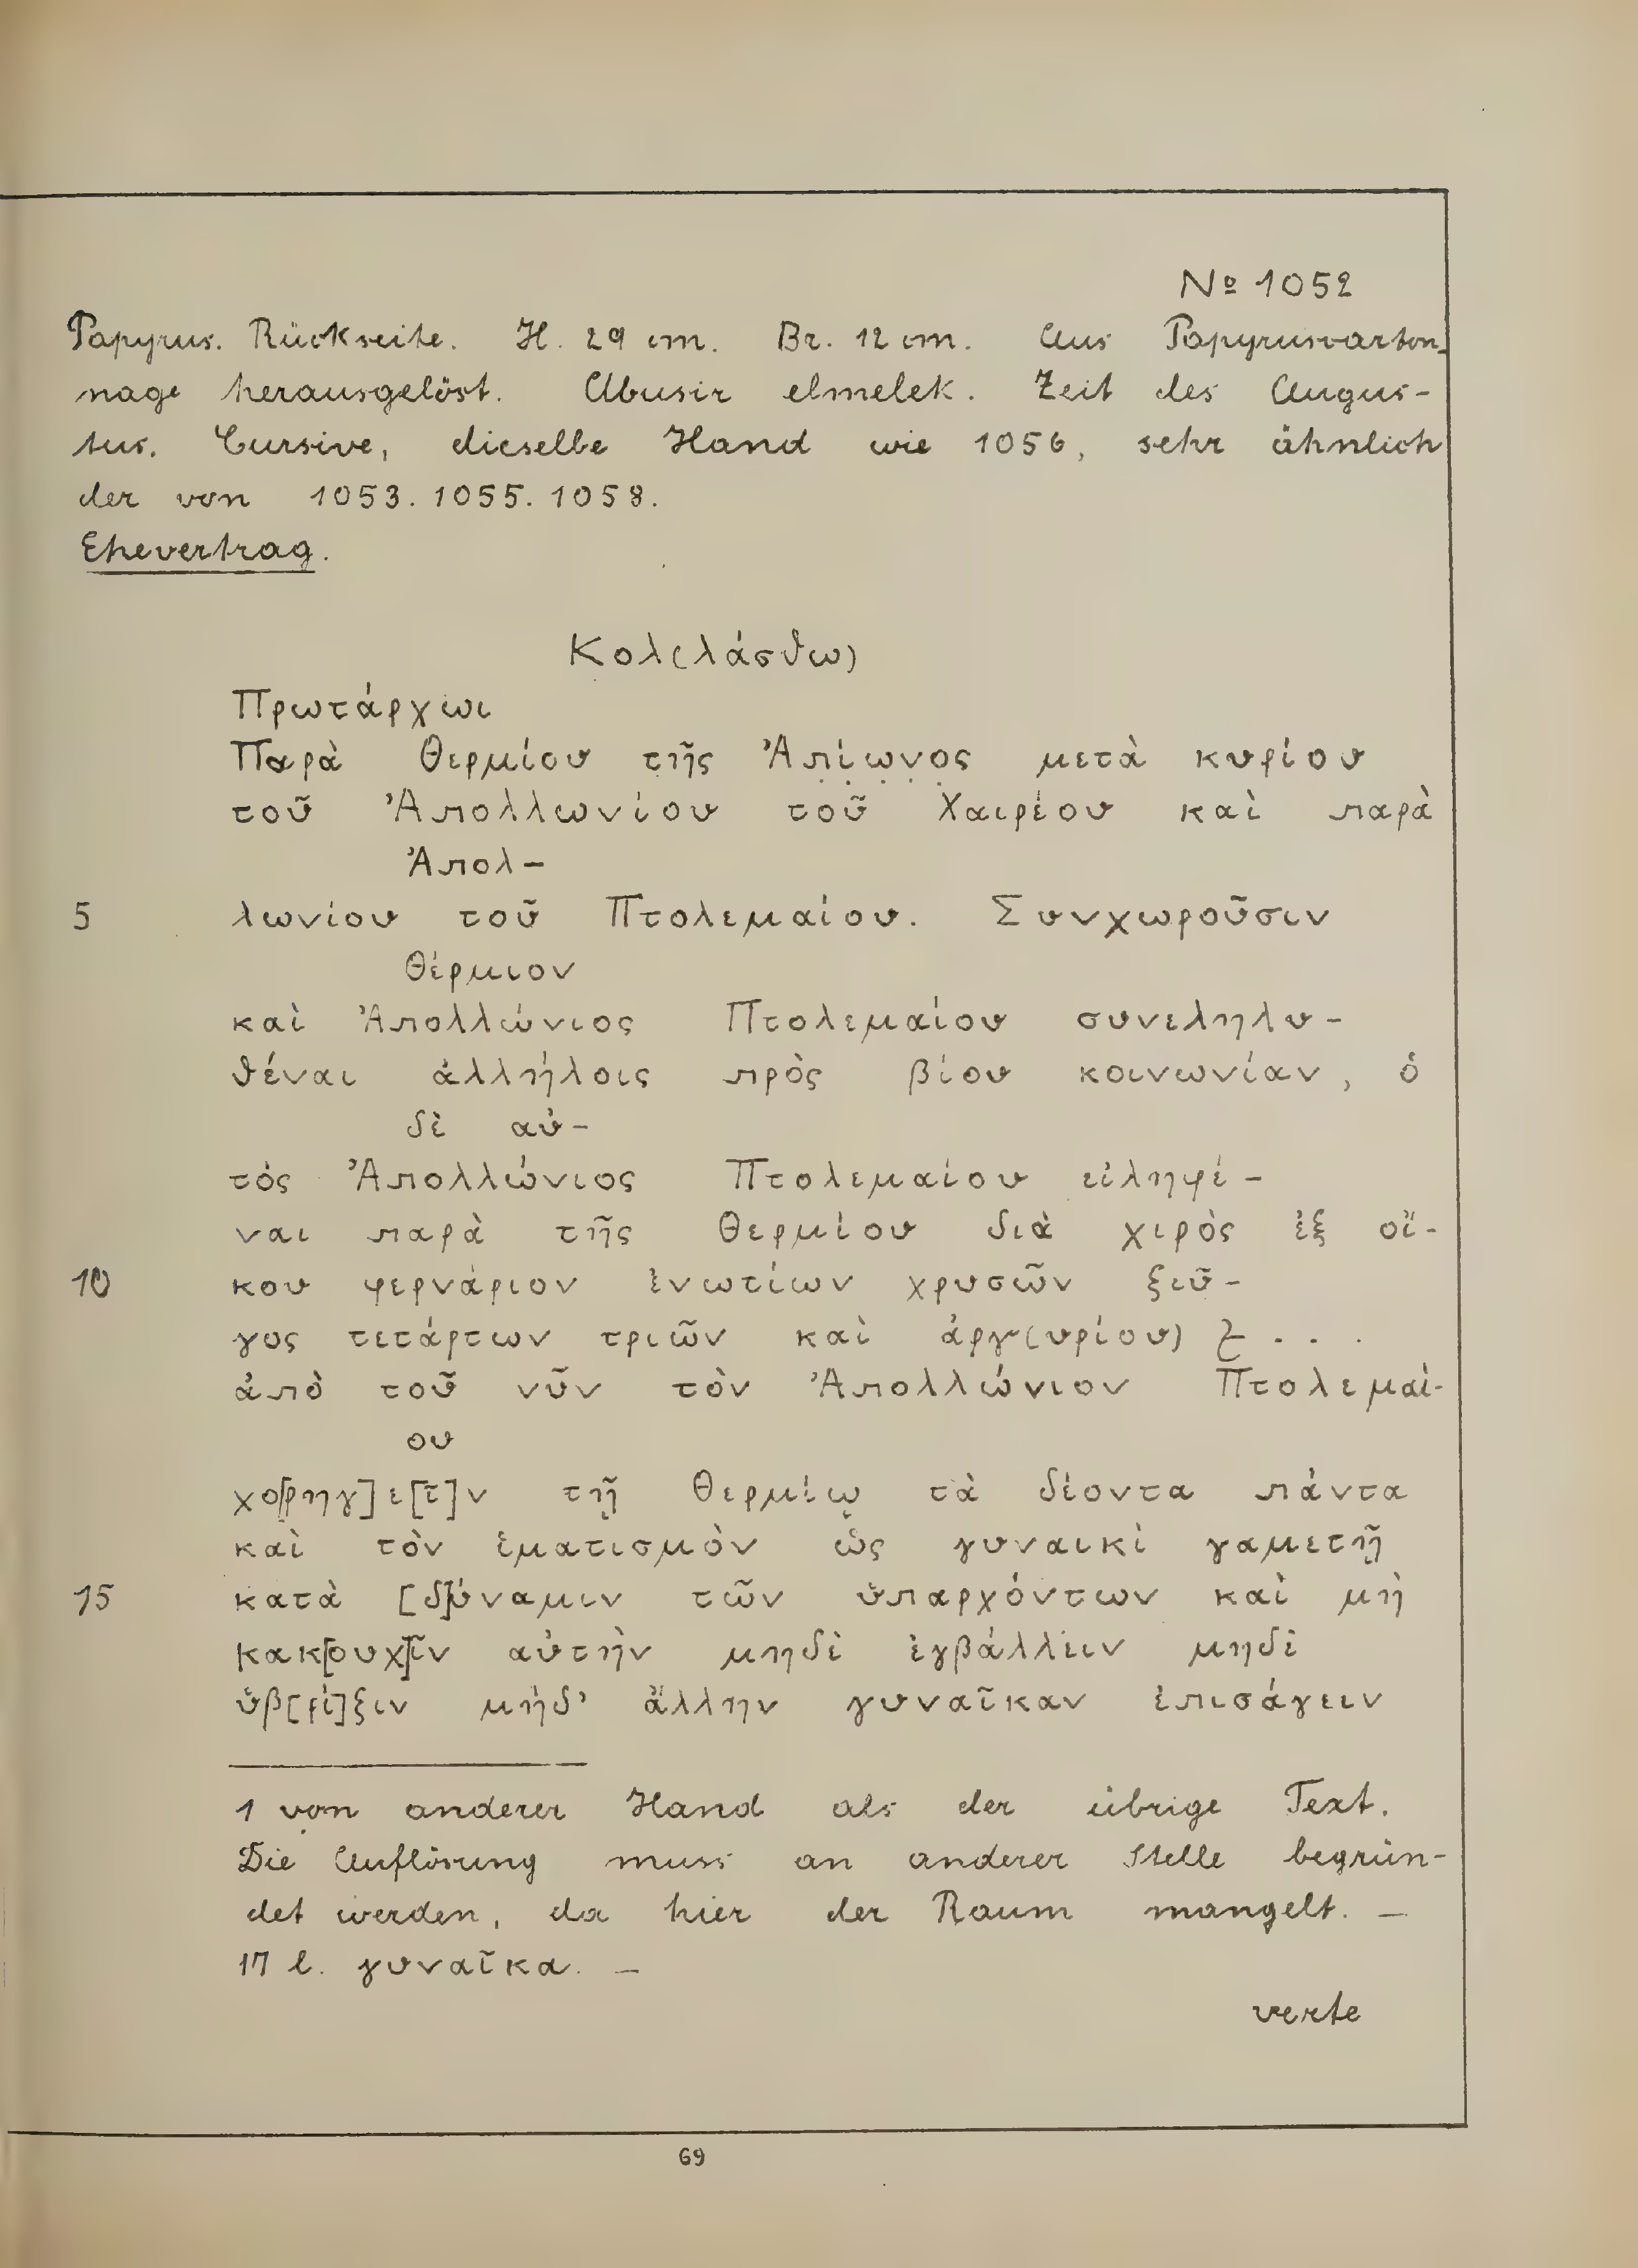 № 1052
Papyrus. Rückseite. H. 29 cm. Br. 12 cm. Aus Papyruscarton-
nage herausgelöst. Abusir elmelek. Zeit des Augus-
tus. Cursive, dieselbe Hand wie 1056, sehr ähnlich
der von 1053. 1055. 1058.
Ehevertrag.
Κολ(λάσθω)
Πρωτάρχωι
Παρὰ Θερμίου τῆς Ἀπ̣ί̣ω̣ν̣ος μετὰ κυρίου
τοῦ Ἀπολλωνίου τοῦ Χαιρέου καὶ παρὰ
Ἀπολ-
5 λωνίου τοῦ Πτολεμαίου. Συνχωροῦσιν
Θέρμιον
καὶ Ἀπολλώνιος Πτολεμαίου συνεληλυ-
θέναι ἀλλήλοις πρὸς βίου κοινωνίαν, ὁ
δὲ αὐ-
τός Ἀπολλώνιος Πτολεμαίου εἰληφέ-
ναι παρὰ τῆς Θερμίου διὰ χιρὸς ἐξ οἴ-
10 κου φερνάριον ἐνωτίων χρυσῶν ζεῦ-
γος τετάρτων τριῶν καὶ ἀργ(υρίου) . . .
ἀπὸ τοῦ νῦν τὸν Ἀπολλώνιον Πτολεμαί-
ου
χο[ρηγ]ε[ῖ]ν τῇ Θερμίῳ τὰ δέοντα πάντα
καὶ τὸν ἱματισμὸν ὡς γυναικὶ γαμετῇ
15 κατὰ [δ]ύναμιν τῶν ὑπαρχόντων καὶ μὴ
κακ[ουχ]ῖν αὐτὴν μηδὲ ἐγβάλλειν μηδὲ
ὑβ[ρί]ζιν μήδ’ ἄλλην γυναῖκαν ἐπισάγειν
1 von anderer Hand als der übrige Text.
Die Auflösung muss an anderer Stelle begrün-
det werden, da hier der Raum mangelt. —
17 l. γυναῖκα. —
verte
69